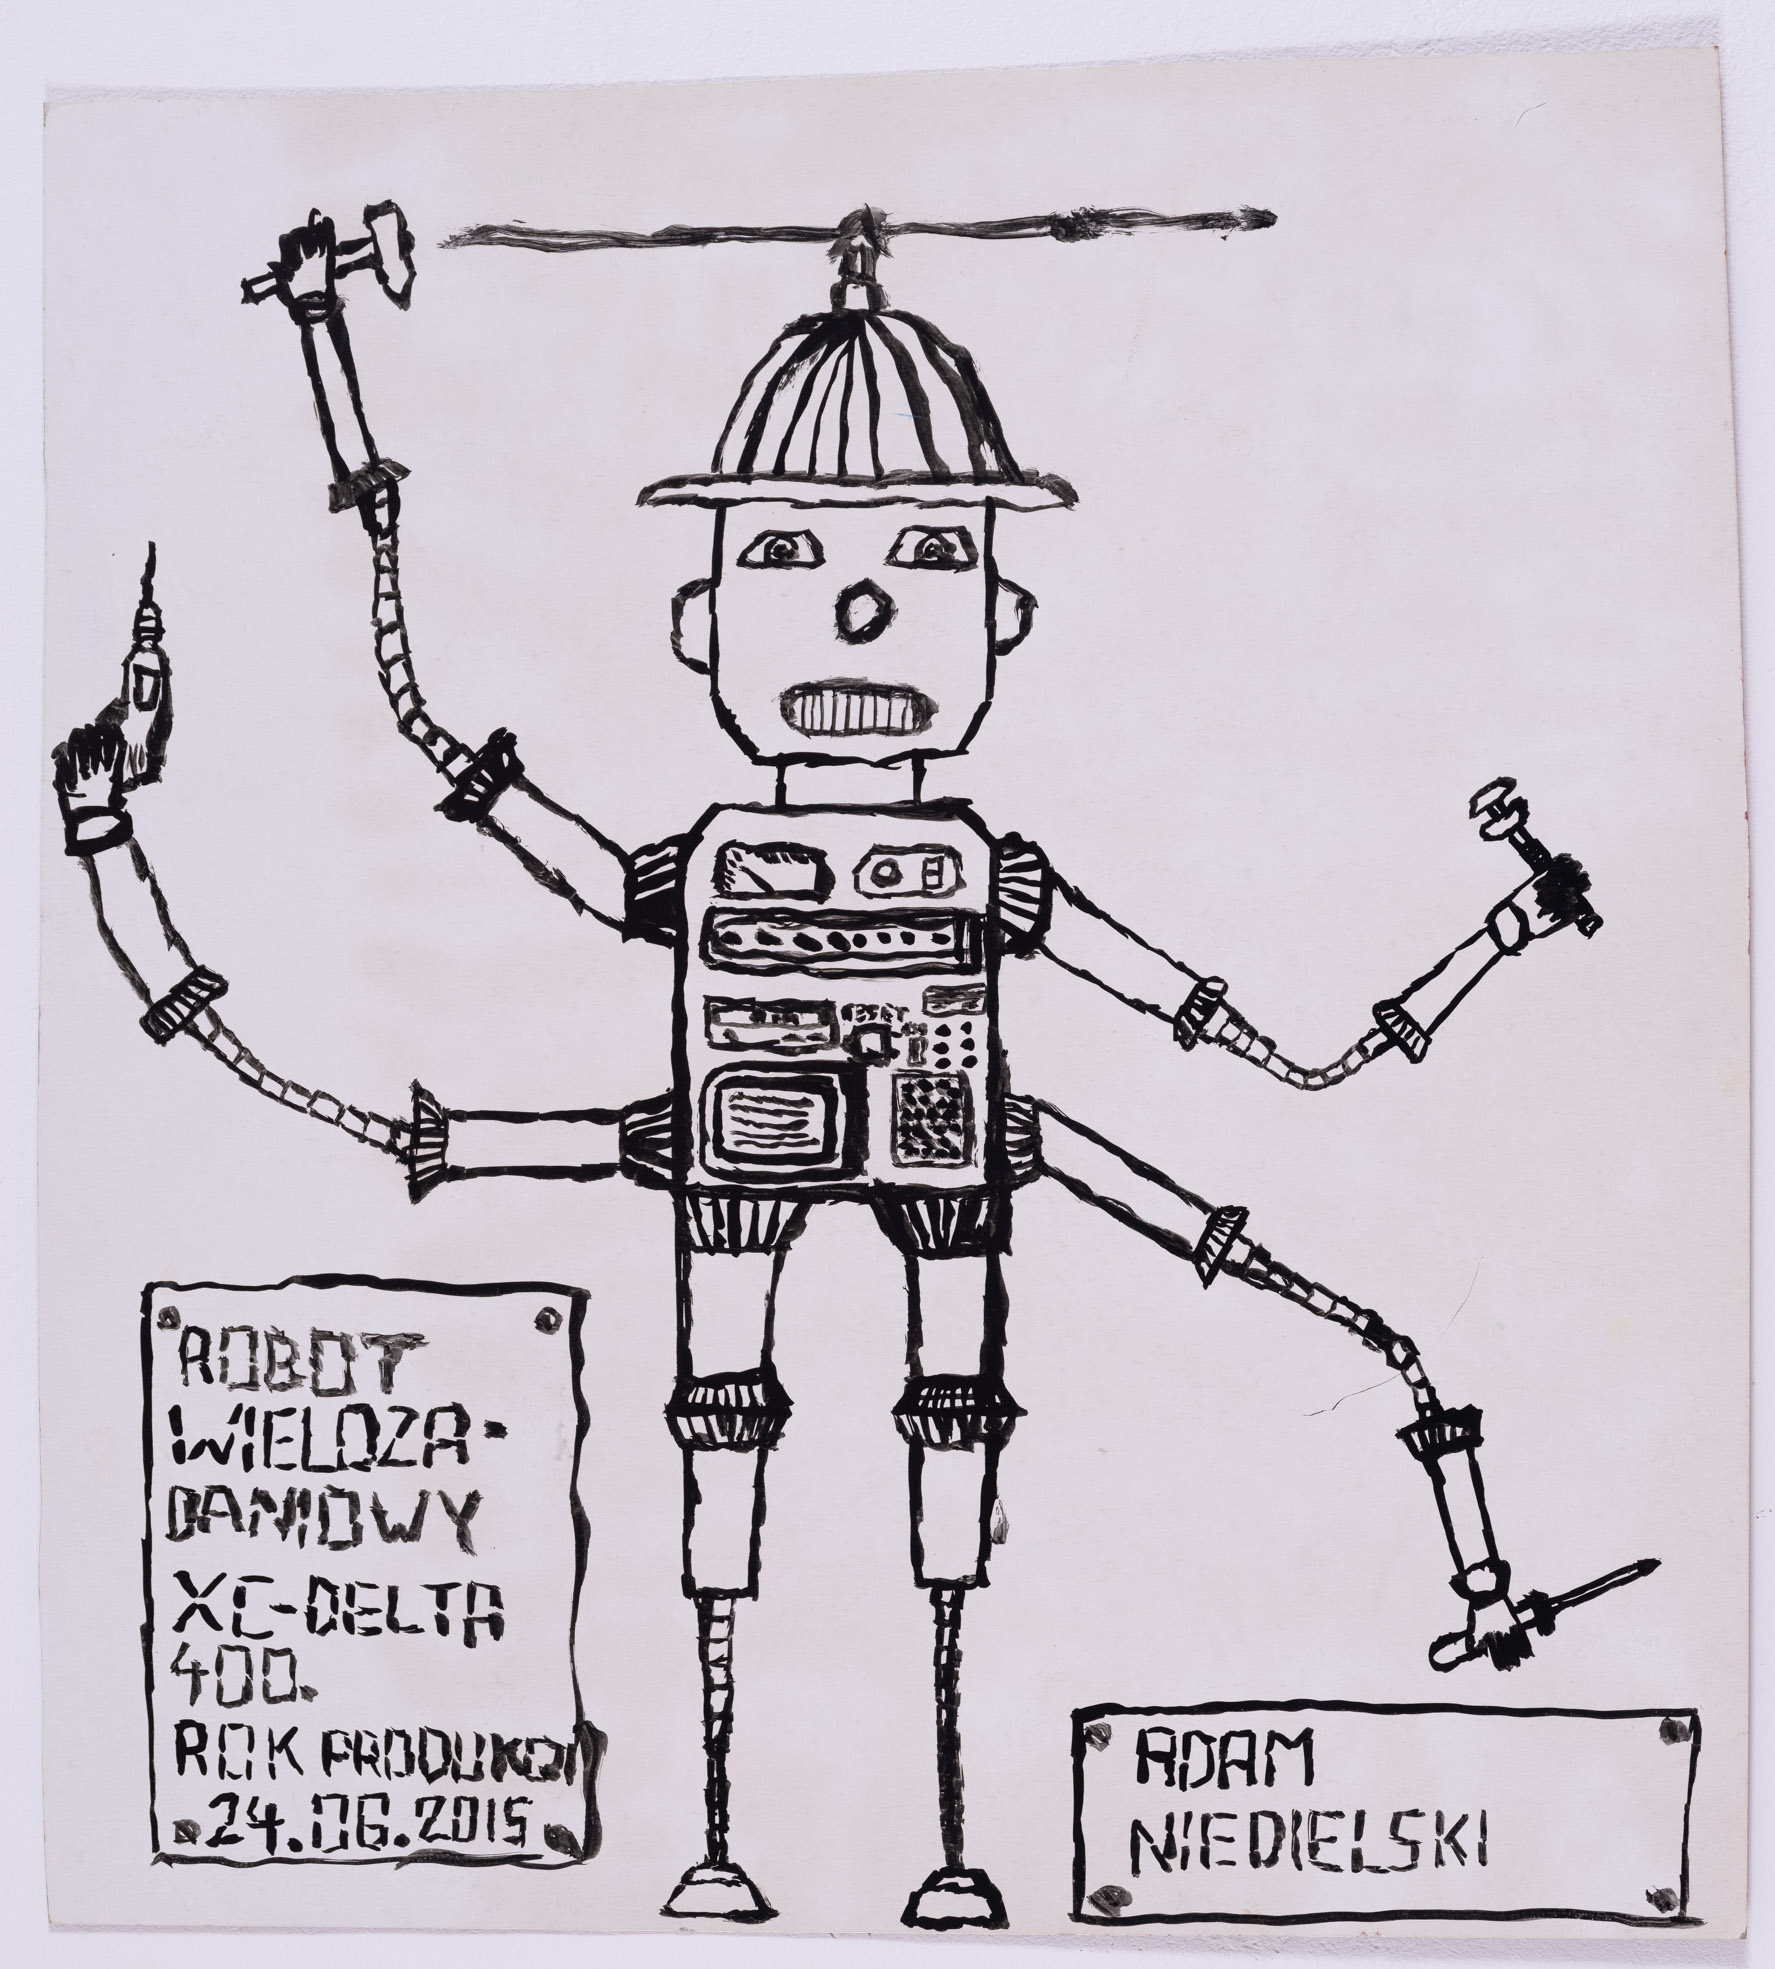 RESET
ROBOT
WIELOZA-
DANIOWY
XC-DELTA
400.
ROK PRODUKCJI
24.06.2015
ADAM
NIEDIELSKI